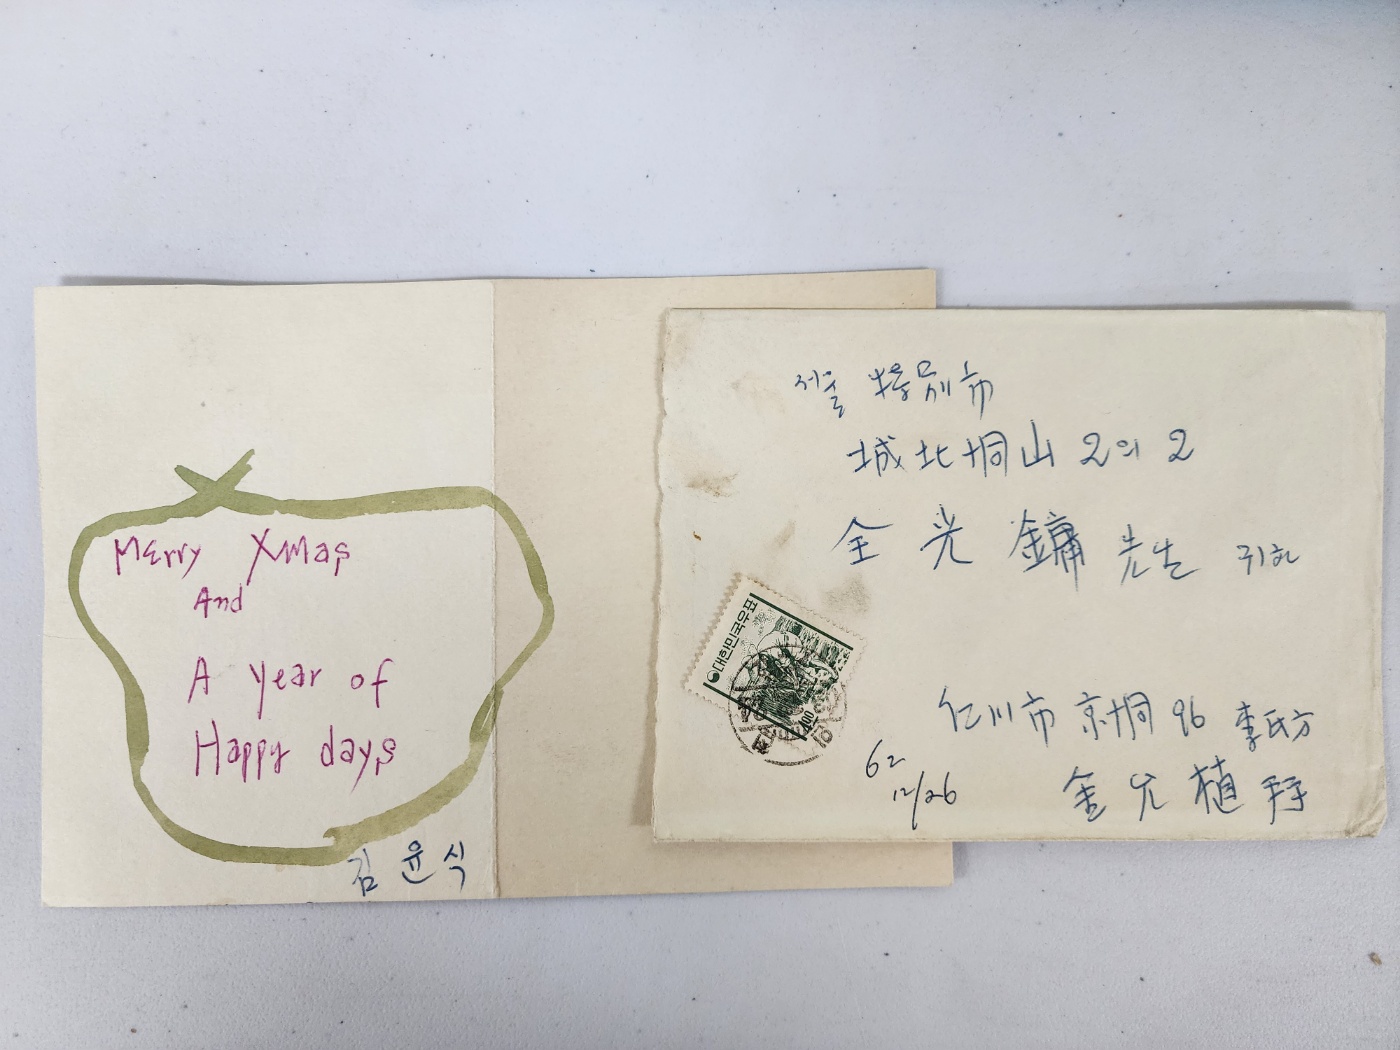 Merry Xmas
And
A year of
Happy days
김 윤 식
서울 特別市
城北洞山 2의 2
金 光 鏞 先生
대한민국우표
4.00
仁川市 京洞 96 李氏方
金 允 植 拜
62
12/26